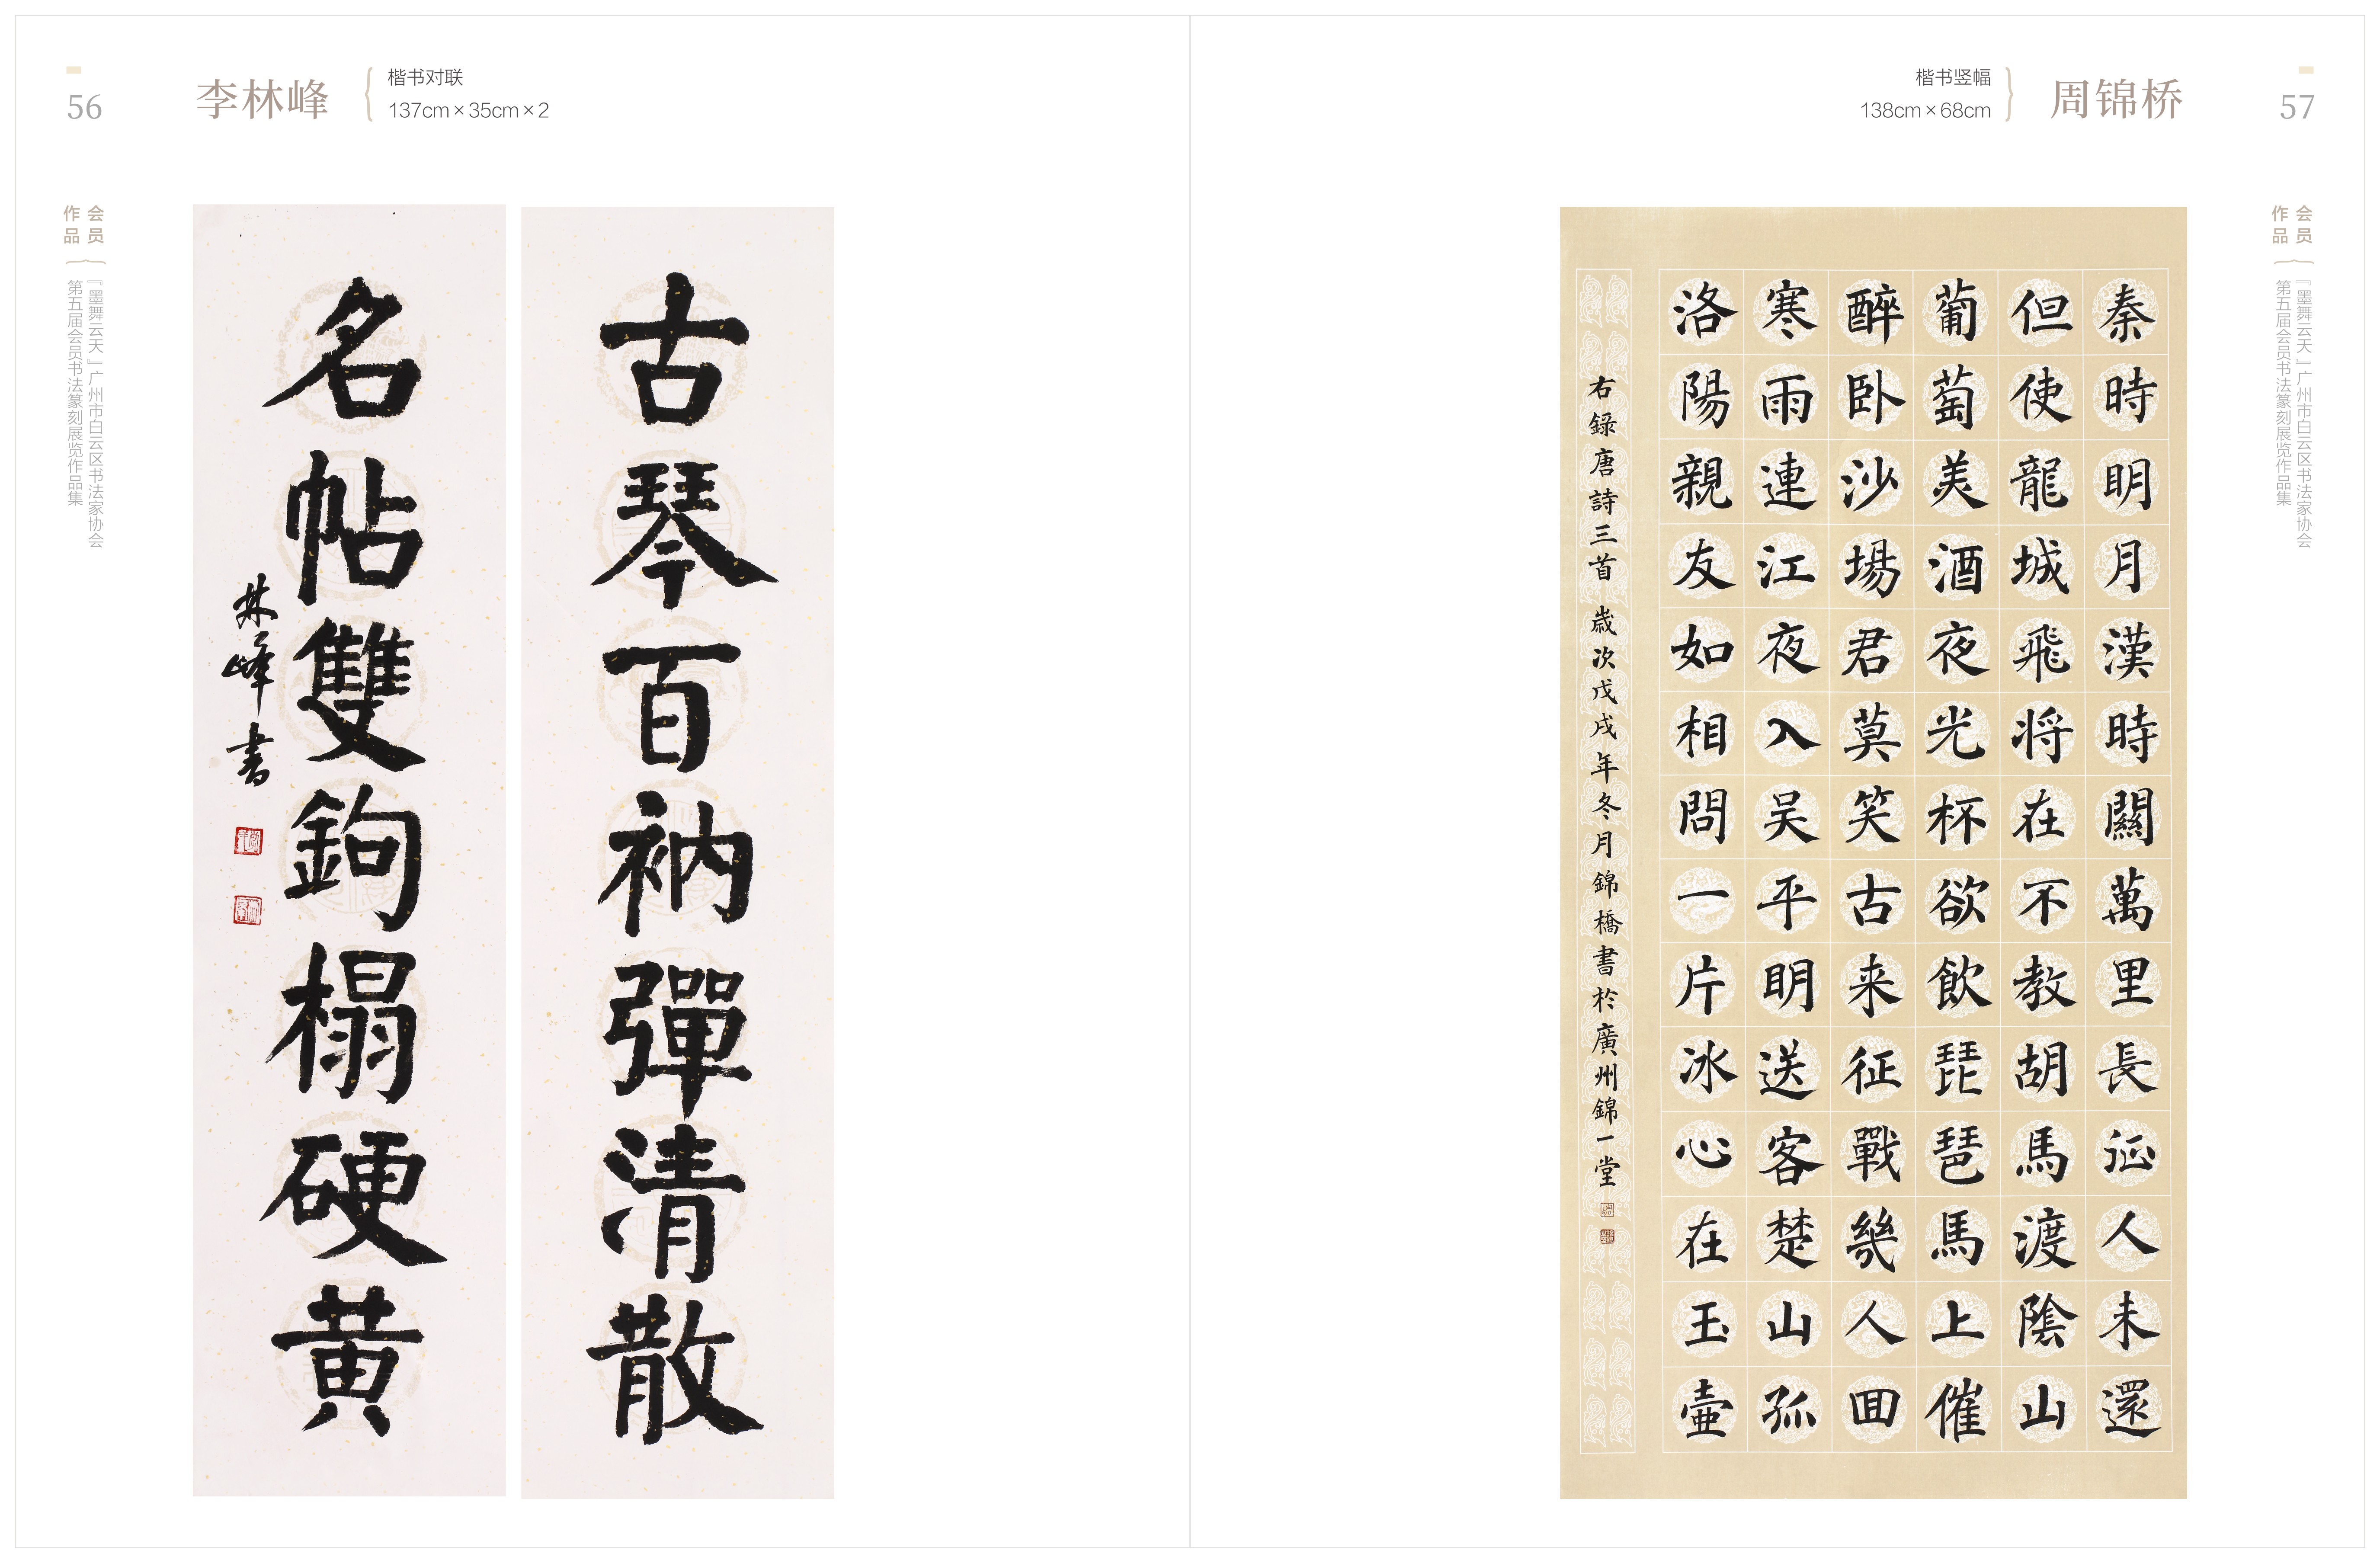 56
李林峰
楷书对联
137cm×35cm×2
会员
作品
『墨舞云天』广州市白云区书法家协会
第五届会员书法篆刻展览作品集
古琴百衲彈清散
名帖雙鉤榻硬黄
林峰書
楷书竖幅
138cm×68cm
周锦桥
57
会员
作品
『墨舞云天』广州市白云区书法家协会
第五届会员书法篆刻展览作品集
秦時明月漢時關萬里長征人未還
但使龍城飛将在不教胡馬渡陰山
葡萄美酒夜光杯欲飲琵琶馬上催
醉卧沙場君莫笑古来征戰幾人回
寒雨連江夜入吴平明送客楚山孤
洛陽親友如相問一片冰心在玉壷
右錄唐詩三首 歲次戊戌年冬月錦橋書於廣州錦一堂